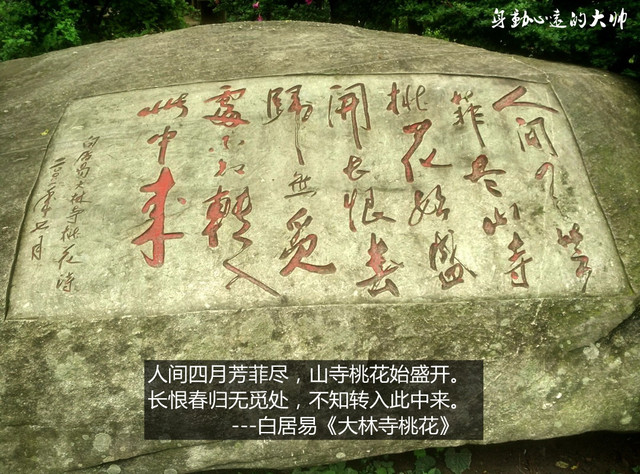 身動心遠的大帅
人間四月芳
菲尽山寺
桃花始盛
開长恨春
歸無覓
處不知轉入
此中来
白居易大林寺桃花诗
年七月
人间四月芳菲尽，山寺桃花始盛开。
长恨春归无觅处，不知转入此中来。
---白居易《大林寺桃花》